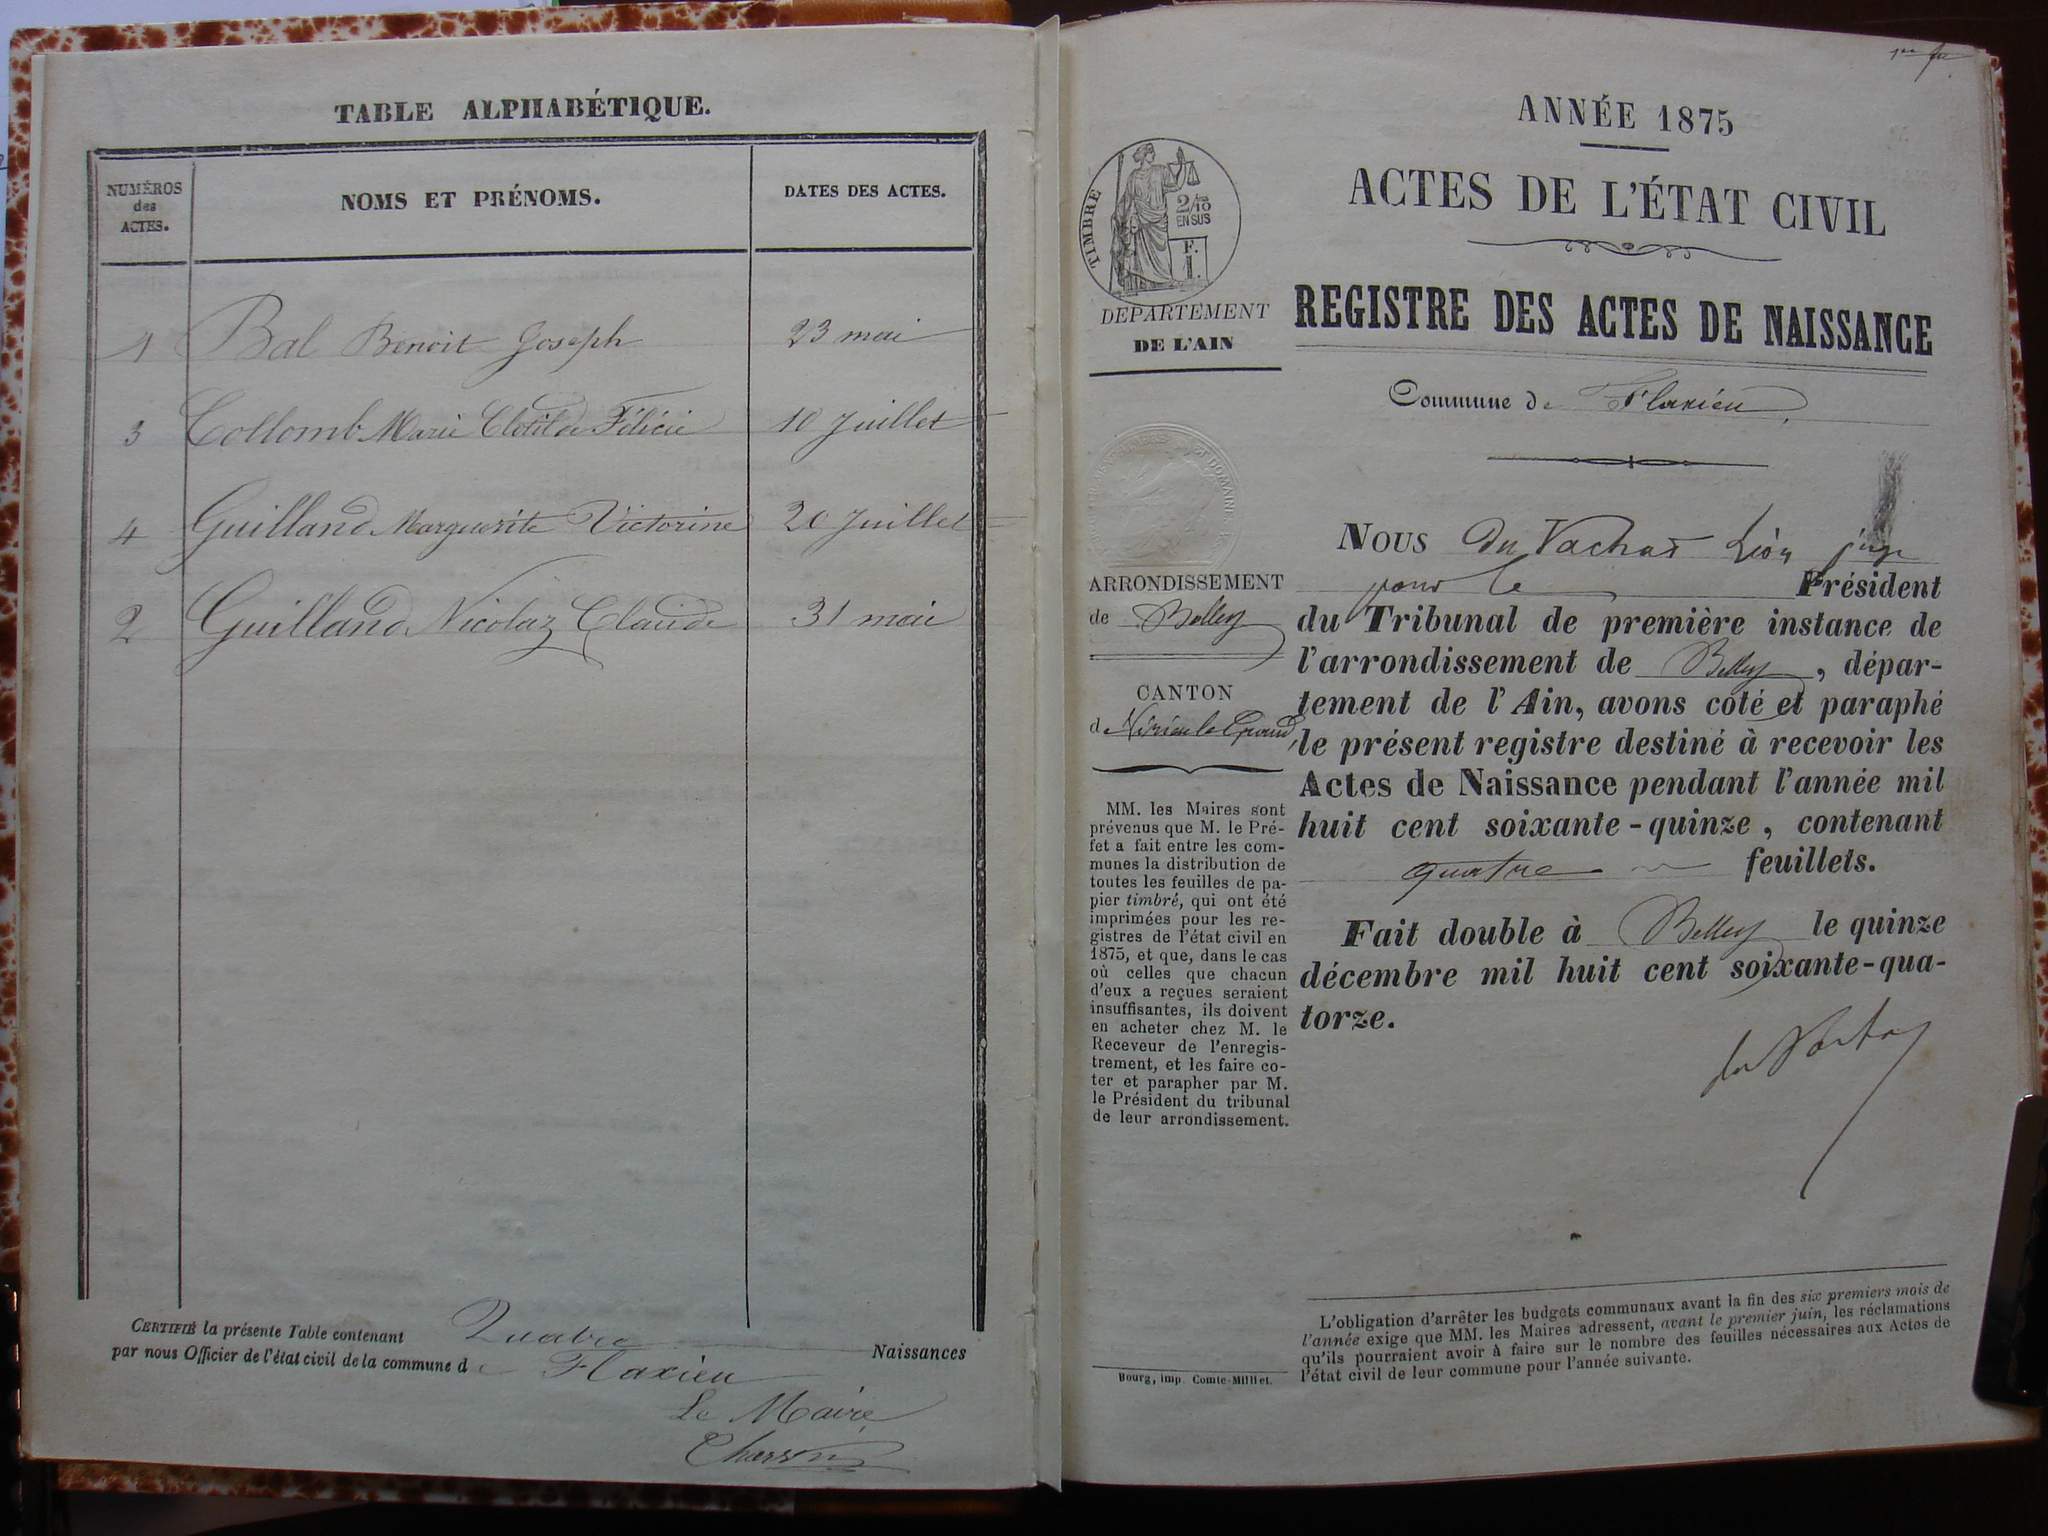 TABLE ALPHABÉTIQUE.
NUMÉROS des ACTES.
NOMS ET PRÉNOMS.
DATES DES ACTES.
1 Bal Benoit Joseph 23 mai
3 Collomb Marie Clotilde Félicie 10 Juillet
4 Guilland Marguerite Victorine 20 Juillet
2 Guilland Nicolaz Claude 31 mai
CERTIFIÉ la présente Table contenant Quatre Naissances
par nous Officier de l'état civil de la commune de Flaxieu
Le Maire
ANNÉE 1875
ACTES DE L'ÉTAT CIVIL
REGISTRE DES ACTES DE NAISSANCE
Commune de Flaxieu
TIMBRE
2/10
EN SUS
F.
1.
DEPARTEMENT
DE L'AIN
ARRONDISSEMENT
de Belley
CANTON
de Virieu le Grand
MM. les Maires sont
prévenus que M. le Pré-
fet a fait entre les com-
munes la distribution de
toutes les feuilles de pa-
pier timbré, qui ont été
imprimées pour les re-
gistres de l'état civil en
1875, et que, dans le cas
où celles que chacun
d'eux a reçues seraient
insuffisantes, ils doivent
en acheter chez M. le
Receveur de l'enregis-
trement, et les faire co-
ter et parapher par M.
le Président du tribunal
de leur arrondissement.
Bourg, imp. Comte-Milliet.
NOUS du Vachat Léon juge
pour le Président
du Tribunal de première instance de
l'arrondissement de Belley, dépar-
tement de l'Ain, avons coté et paraphé
le présent registre destiné à recevoir les
Actes de Naissance pendant l'année mil
huit cent soixante-quinze, contenant
quatre feuillets.
Fait double à Belley le quinze
décembre mil huit cent soixante-qua-
torze.
L'obligation d'arrêter les budgets communaux avant la fin des six premiers mois de
l'année exige que MM. les Maires adressent, avant le premier juin, les réclamations
qu'ils pourraient avoir à faire sur le nombre des feuilles nécessaires aux Actes de
l'état civil de leur commune pour l'année suivante.